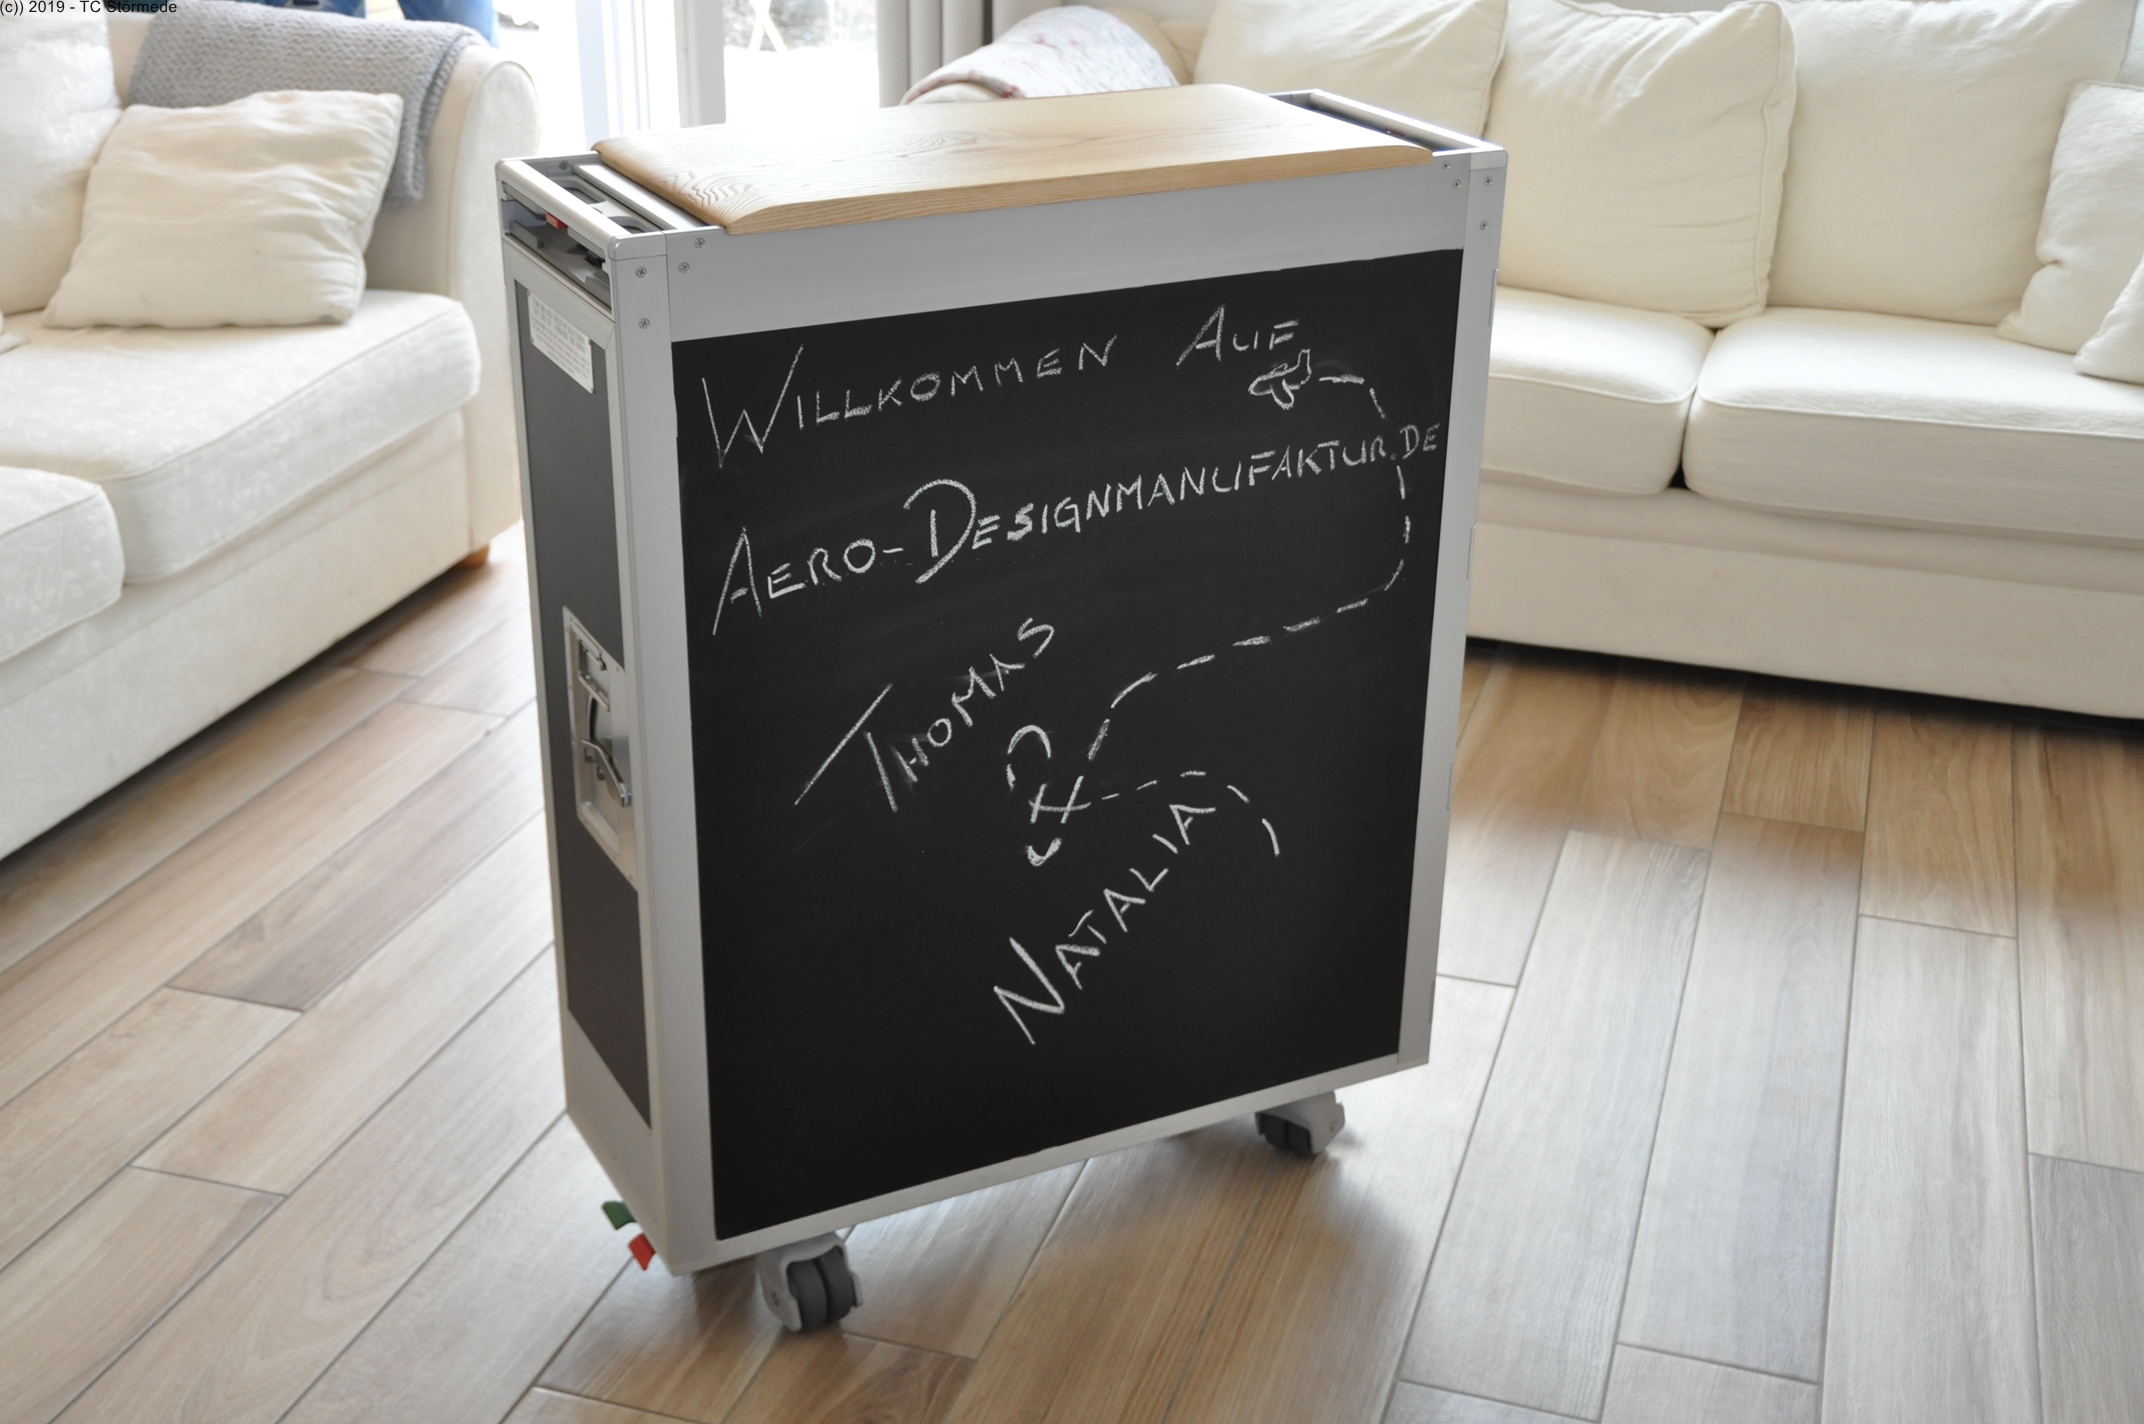 (c)) 2019 - TC Störmede
WILLKOMMEN AUF
AERO-DESIGNMANUFAKTUR.DE
THOMAS
&
NATALIA